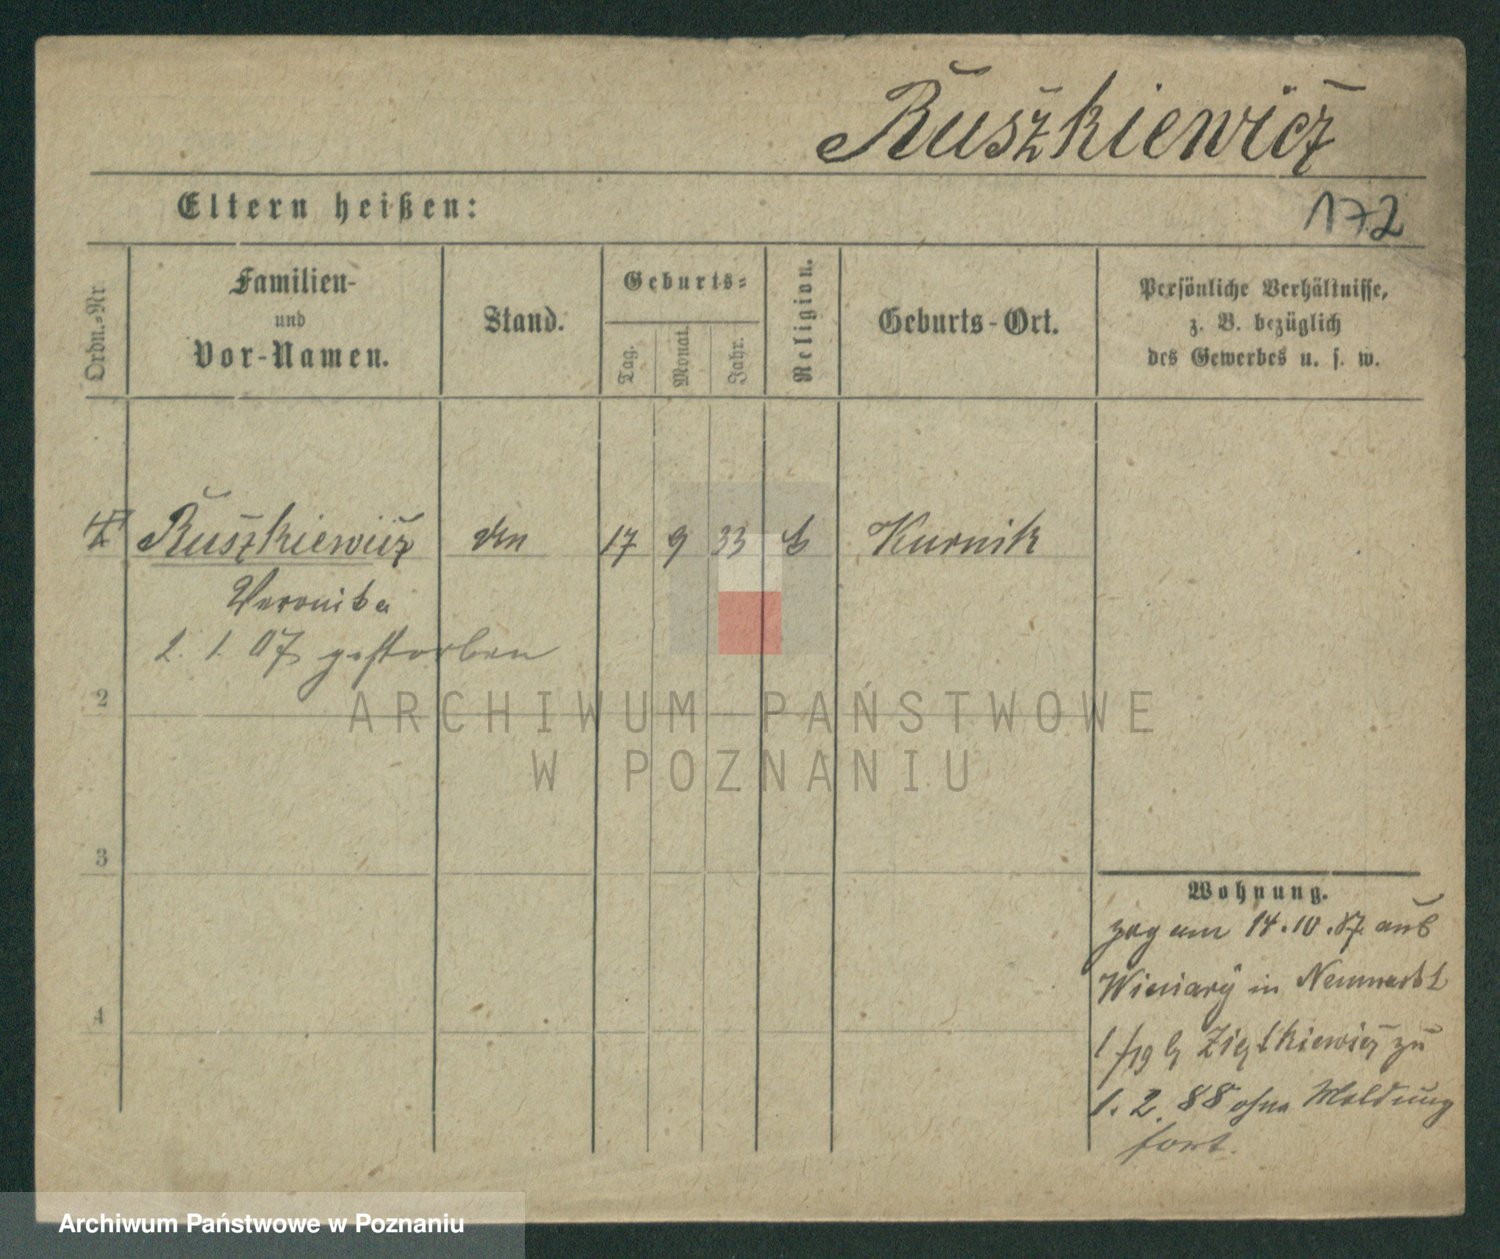 Ruszkiewicz
Eltern heißen:
172
Ordn.-Nr
Familien-
und
Vor-Namen.
Stand.
Geburts-
Tag.
Monat.
Jahr.
Religion.
Geburts-Ort.
Persönliche Verhältnisse,
z. B. bezüglich
des Gewerbes u. s. w.
Ruszkiewicz
17 9 33
Kurnik
Veronika
2. 1. 07 gestorben
2
3
4
Wohnung.
zog am 14.10.87 aus
Winiary in Neumarkt
1 zu
1. 2. 88 ohne Meldung
fort.
ARCHIWUM PAŃSTWOWE
W POZNANIU
Archiwum Państwowe w Poznaniu